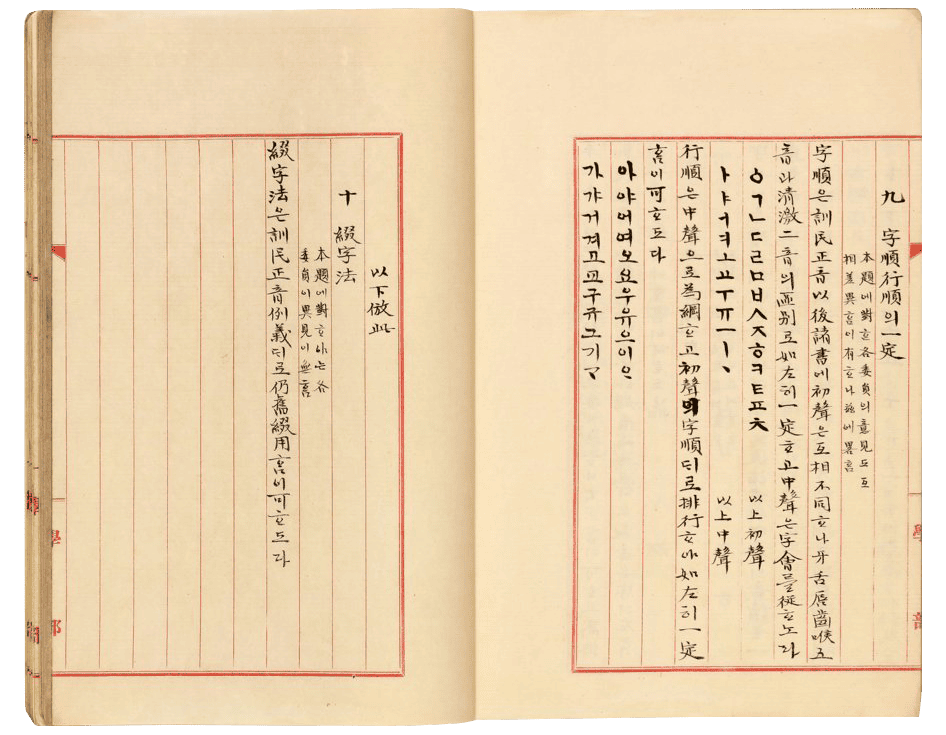 九 字順行順의一定
本題에對ᄒᆞᆫ各委員의意見도互
相差異홈이有ᄒᆞ나玆에畧홈
字順은訓民正音以後諸書에初聲은互相不同ᄒᆞ나牙舌唇齒喉五
音과清激二音의區別로如左히一定ᄒᆞ고中聲은字會를從ᄒᆞ노라
ㆁㄱㄴㄷㄹㅁㅂㅅㅈㅎㅋㅌㅍㅊ 以上初聲
ㅏㅑㅓㅕㅗㅛㅜㅠㅡㅣㆍ 以上中聲
行順은中聲으로爲綱ᄒᆞ고初聲의字順ᄃᆡ로排行ᄒᆞ야如左히一定
홈이可ᄒᆞ도다
아야어여오요우유으이ᄋᆞ
가갸거겨고교구규그기ᄀᆞ
以下倣此
十 綴字法
本題에對ᄒᆞ야는各
委員이異見이無홈
綴字法은訓民正音例義ᄃᆡ로仍舊綴用홈이可ᄒᆞ도다